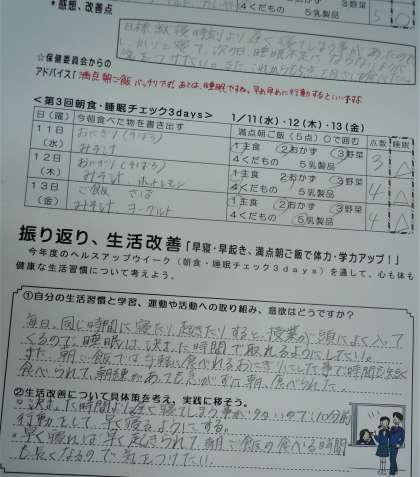 * 感想、改善点
4くだもの 5乳製品
☆保健委員会からの
アドバイス!
満点朝ご飯 バッチリです。あとは、睡眠ですね。早め早めに行動するといいですよ
<第3回朝食・睡眠チェック3days> 1/11(水)・12(木)・13(金)
日(曜) 今朝食べた物を書き出す 満点朝ご飯(5点)〇で囲む 点数 睡眠
11日(水) おにぎり みそ汁 1主食 ②おかず ③野菜 4くだもの 5乳製品 3 △
12日(木) おにぎり みそ汁 1主食 ②おかず ③野菜 くだもの 5乳製品 4 △
13日(金) ご飯 みそ汁 ヨーグルト 主食 ②おかず ③野菜 4くだもの 乳製品 4 △
振り返り、生活改善「早寝・早起き、満点朝ご飯で体力・学力アップ!」
今年度のヘルスアップウイーク(朝食・睡眠チェック3days)を通して、心も体も
健康な生活習慣について考えよう。
①自分の生活習慣と学習、運動や活動への取り組み、意欲はどうですか?
毎日、同じ時間に寝たり、起きたりすると、授業が頭によく入っ
てくるので、睡眠は、決まった時間で取れるようにしたい。
また、朝ご飯では手軽に食べれるおにぎりにした事で時間も短く
食べられて、朝練があっても急がずに朝、食べられた。
②生活改善について具体策を考え、実践に移そう。
・決まった時間より遅く寝てしまう事が多いので、10分前
行動をして、早く寝るようにする。
・早く寝れば早く起きられて、朝ご飯の食べる時間
も長くなるので気をつけたい。